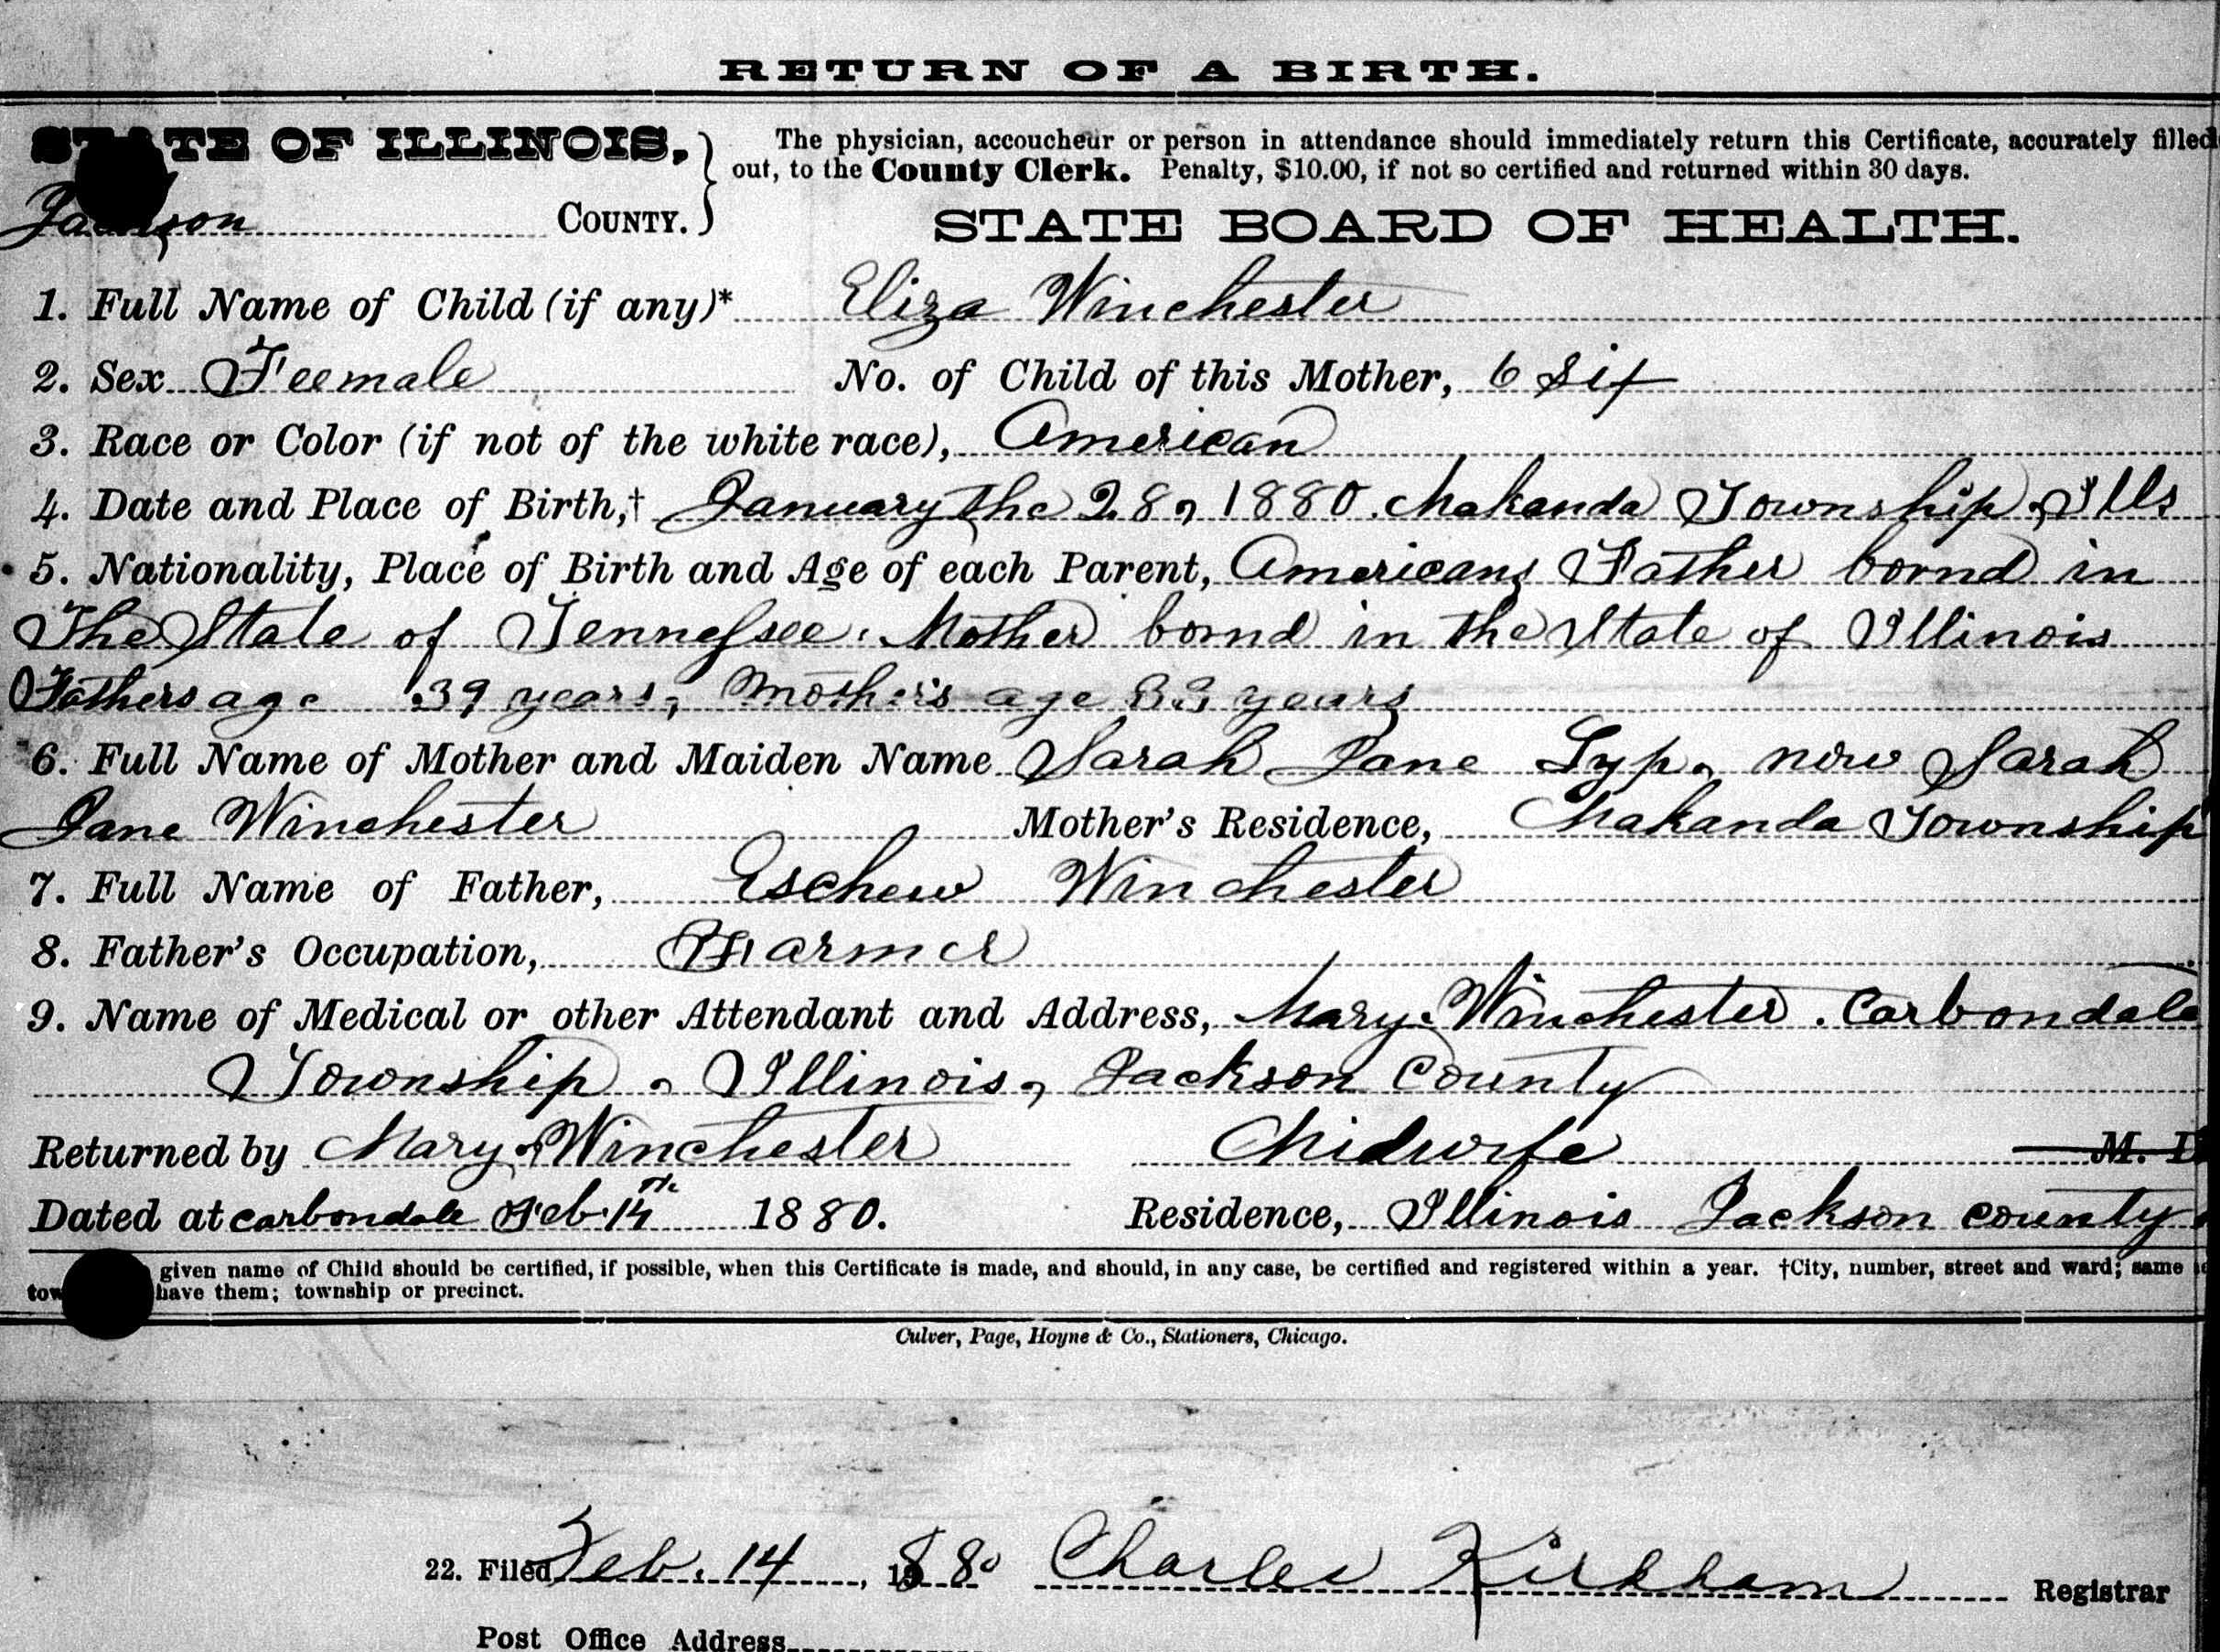 RETURN OF A BIRTH.
STATE OF ILLINOIS,
The physician, accoucheur or person in attendance should immediately return this Certificate, accurately filled
out, to the County Clerk. Penalty, $10.00, if not so certified and returned within 30 days.
Jackson COUNTY.
STATE BOARD OF HEALTH.
1. Full Name of Child (if any)* Eliza Winchester
2. Sex Feemale No. of Child of this Mother, 6 Six
3. Race or Color (if not of the white race), American
4. Date and Place of Birth,† January the 28, 1880. Makanda Township, Ills
5. Nationality, Place of Birth and Age of each Parent, Americans Father bornd in
The State of Tennessee. Mother bornd in the State of Illinois
Fathers age 39 years, Mothers age 33 years
6. Full Name of Mother and Maiden Name Sarah Jane Lyp. now Sarah
Jane Winchester Mother's Residence, Makanda Township
7. Full Name of Father, Eschew Winchester
8. Father's Occupation, Farmer
9. Name of Medical or other Attendant and Address, Mary Winchester. Carbondale
Township, Illinois, Jackson County
Returned by Mary Winchester Midwife M. D
Dated at carbondale Feb. 14th 1880. Residence, Illinois Jackson county
given name of Child should be certified, if possible, when this Certificate is made, and should, in any case, be certified and registered within a year. †City, number, street and ward; same
have them; township or precinct.
Culver, Page, Hoyne & Co., Stationers, Chicago.
22. Filed Feb. 14, 1880 Charles Kirkham Registrar
Post Office Address